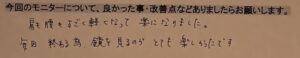 今回のモニターについて、良かった事・改善点などありましたらお願いします。
肩も腰もすごく軽くなって楽になりました。
毎日 終わる為 鏡を見るのがとても楽しかったです